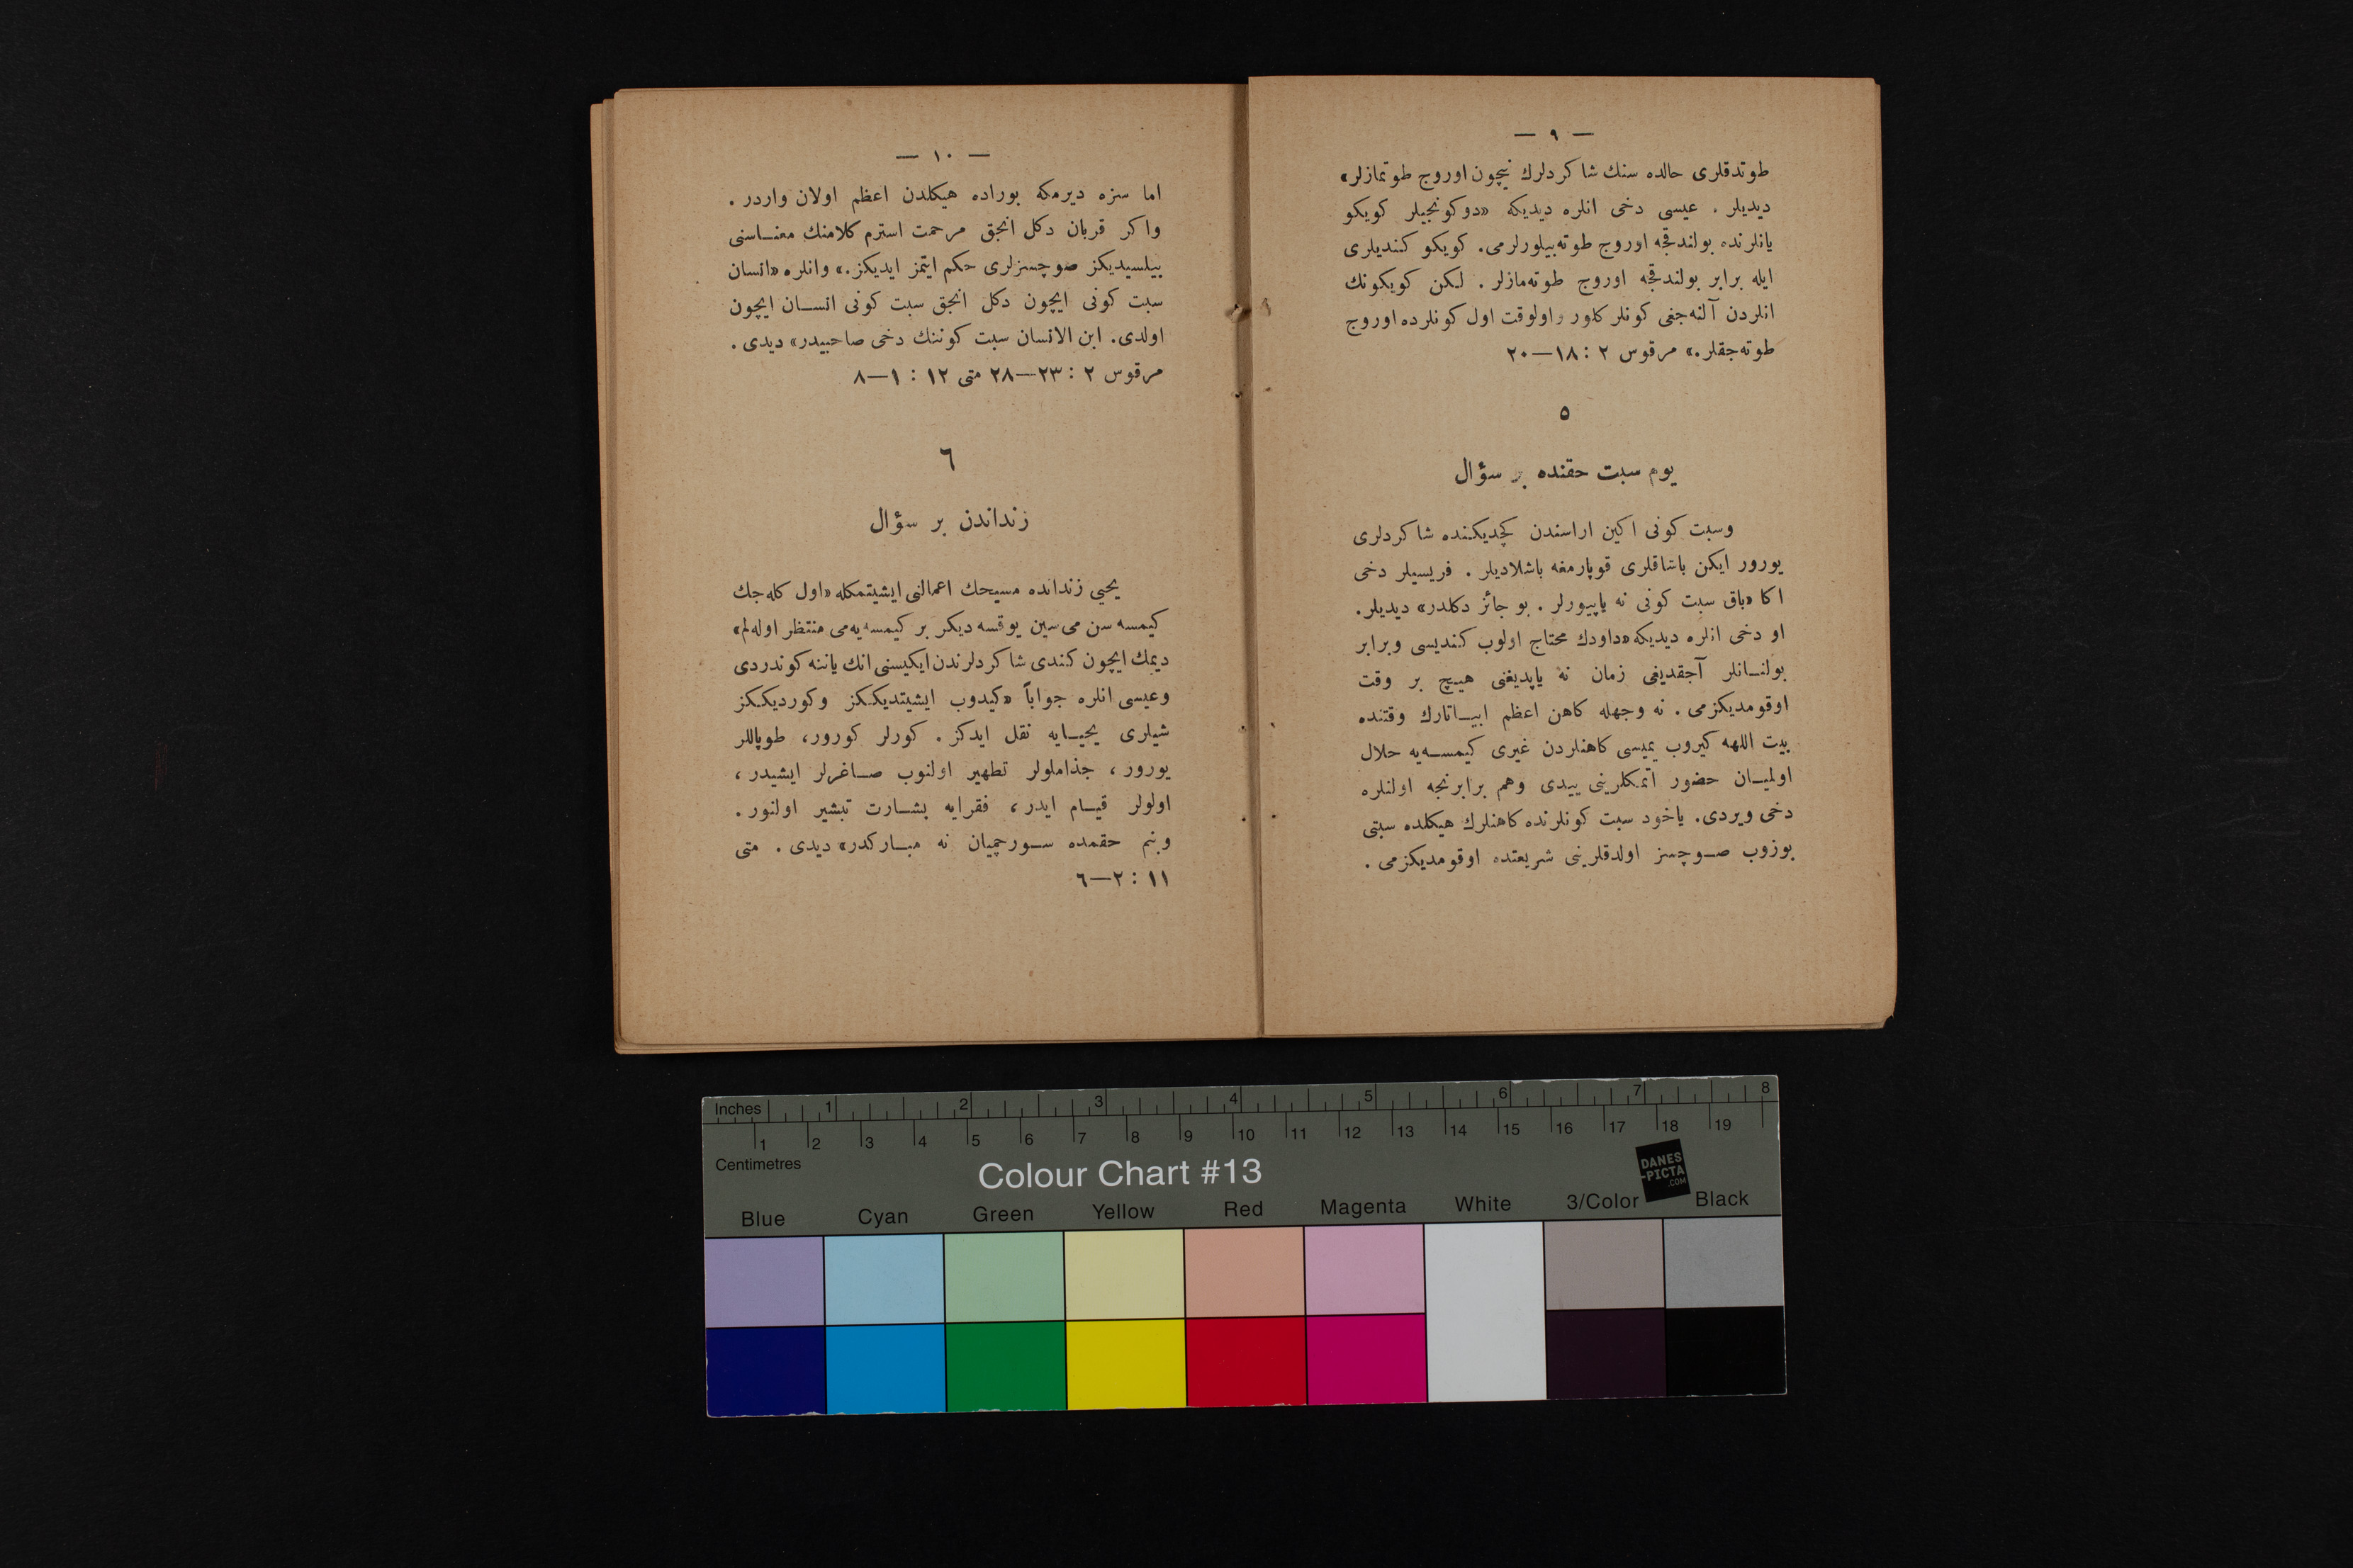 — ٩ —
طوتدقلری حالده سنك شاكردلرك نیچون اوروج طوتمازلر»
دیدیلر . عیسی دخی انلره دیدیكه «دوكونجیلر كویكو
یانلرنده بولندقجه اوروج طوته‌بیلورلرمی. كویكو كندیلری
ایله برابر بولندقجه اوروج طوته‌مازلر . لكن كویكونك
انلردن آلنه‌جغی كونلر كلور واولوقت اول كونلرده اوروج
طوته‌جقلر.» مرقوس ٢ : ١٨—٢٠
٥
یوم سبت حقنده بر سؤال
وسبت كونی اكین اراسندن كچدیكنده شاكردلری
یورور ایكن باشاقلری قوپارمغه باشلادیلر . فریسیلر دخی
اكا «باق سبت كونی نه یاپیورلر . بو جائز دكلدر» دیدیلر.
او دخی انلره دیدیكه «داودك محتاج اولوب كندیسی وبرابر
بولنـانلر آجقدیغی زمان نه یاپدیغنی هیـچ بر وقت
اوقومدیكزمی . نه وجهله كاهن اعظم ابیـاتارك وقتنده
بیت اللهه كیروب یمیسی كاهنلردن غیری كیمسـه‌یه حلال
اولمیـان حضور اتمكلرینی ییدی وهم برابرنجه اولنلره
دخی ویردی. یاخود سبت كونلرنده كاهنلرك هیكلده سبتی
بوزوب صـوچسز اولدقلرینی شریعتده اوقومدیكزمی .
— ١٠ —
اما سزه دیرمكه بوراده هیكلدن اعظم اولان واردر .
واكر قربان دكل انجق مرحمت استرم كلامنك معنـاسنی
بیلسیدیكز صوچسزلری حكم ایتمز ایدیكز.» وانلره «انسان
سبت كونی ایچون دكل انجق سبت كونی انسـان ایچون
اولدی. ابن الانسان سبت كوننك دخی صاحبیدر» دیدی .
مرقوس ٢ : ٢٣—٢٨ متی ١٢ : ١—٨
٦
زنداندن بر سؤال
یحیی زندانده مسیحك اعمالنی ایشیتمكله «اول كله‌جك
كیمسه سن می‌سین یوقسه دیكر بر كیمسه‌یه‌می منتظر اوله‌لم»
دیمك ایچون كندی شاكردلرندن ایكیسنی انك یاننه كوندردی
وعیسی انلره جواباً «كیدوب ایشیتدیكـكز وكوردیكـكز
شیلری یحیـایه نقل ایدكز . كورلر كورور، طوپاللر
یورور، جذاملولر تطهیر اولنوب صـاغرلر ایشیدر،
اولولر قیـام ایدر، فقرایه بشـارت تبشیر اولنور .
وبنم حقمده سـورچمیان نه مبـاركدر» دیدی . متی
١١ : ٢—٦
Inches 1 2 3 4 5 6 7 8
1 2 3 4 5 6 7 8 9 10 11 12 13 14 15 16 17 18 19
Centimetres
Colour Chart #13
DANES
-PICTA
.COM
Blue Cyan Green Yellow Red Magenta White 3/Color Black